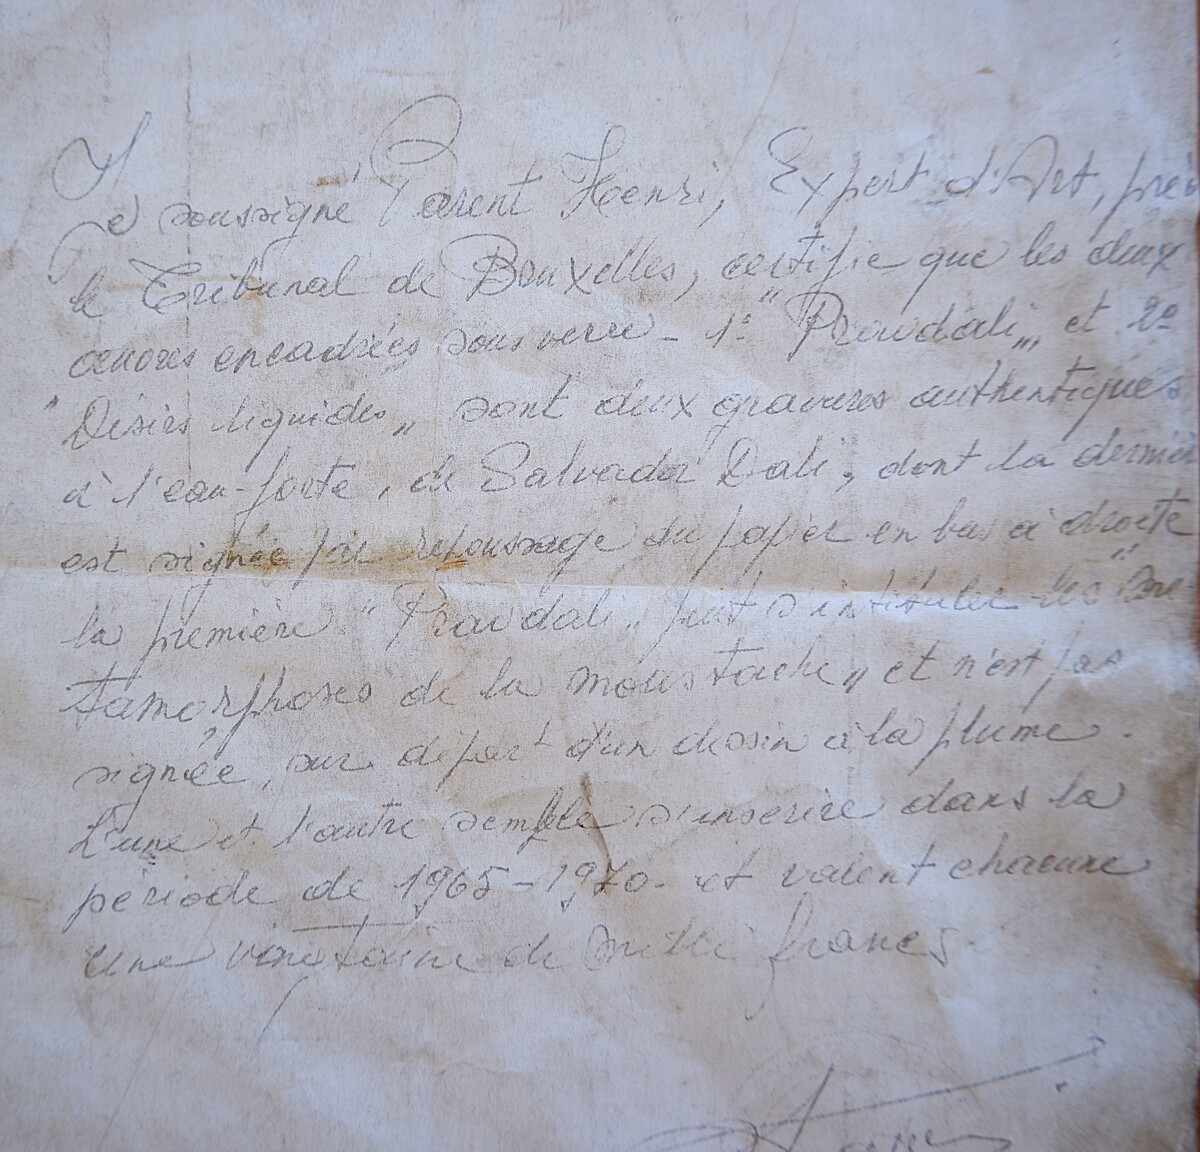 Je soussigné Parent Henri, Expert d'Art, près
le Tribunal de Bruxelles, certifie que les deux
œuvres encadrées sous verre - 1° "Pravdali" et 2°
"Désirs liquides" sont deux gravures authentiques
à l'eau-forte, de Salvador Dali, dont la dernière
est signée par repoussage du papier en bas à droite
la première "Pravdali" peut s'intituler les "Mé-
tamorphoses de la moustache" et n'est pas
signée, sur départ d'un dessin à la plume.
L'une et l'autre semble s'inscrire dans la
période de 1965-1970 - et valent chacune
une vingtaine de mille francs